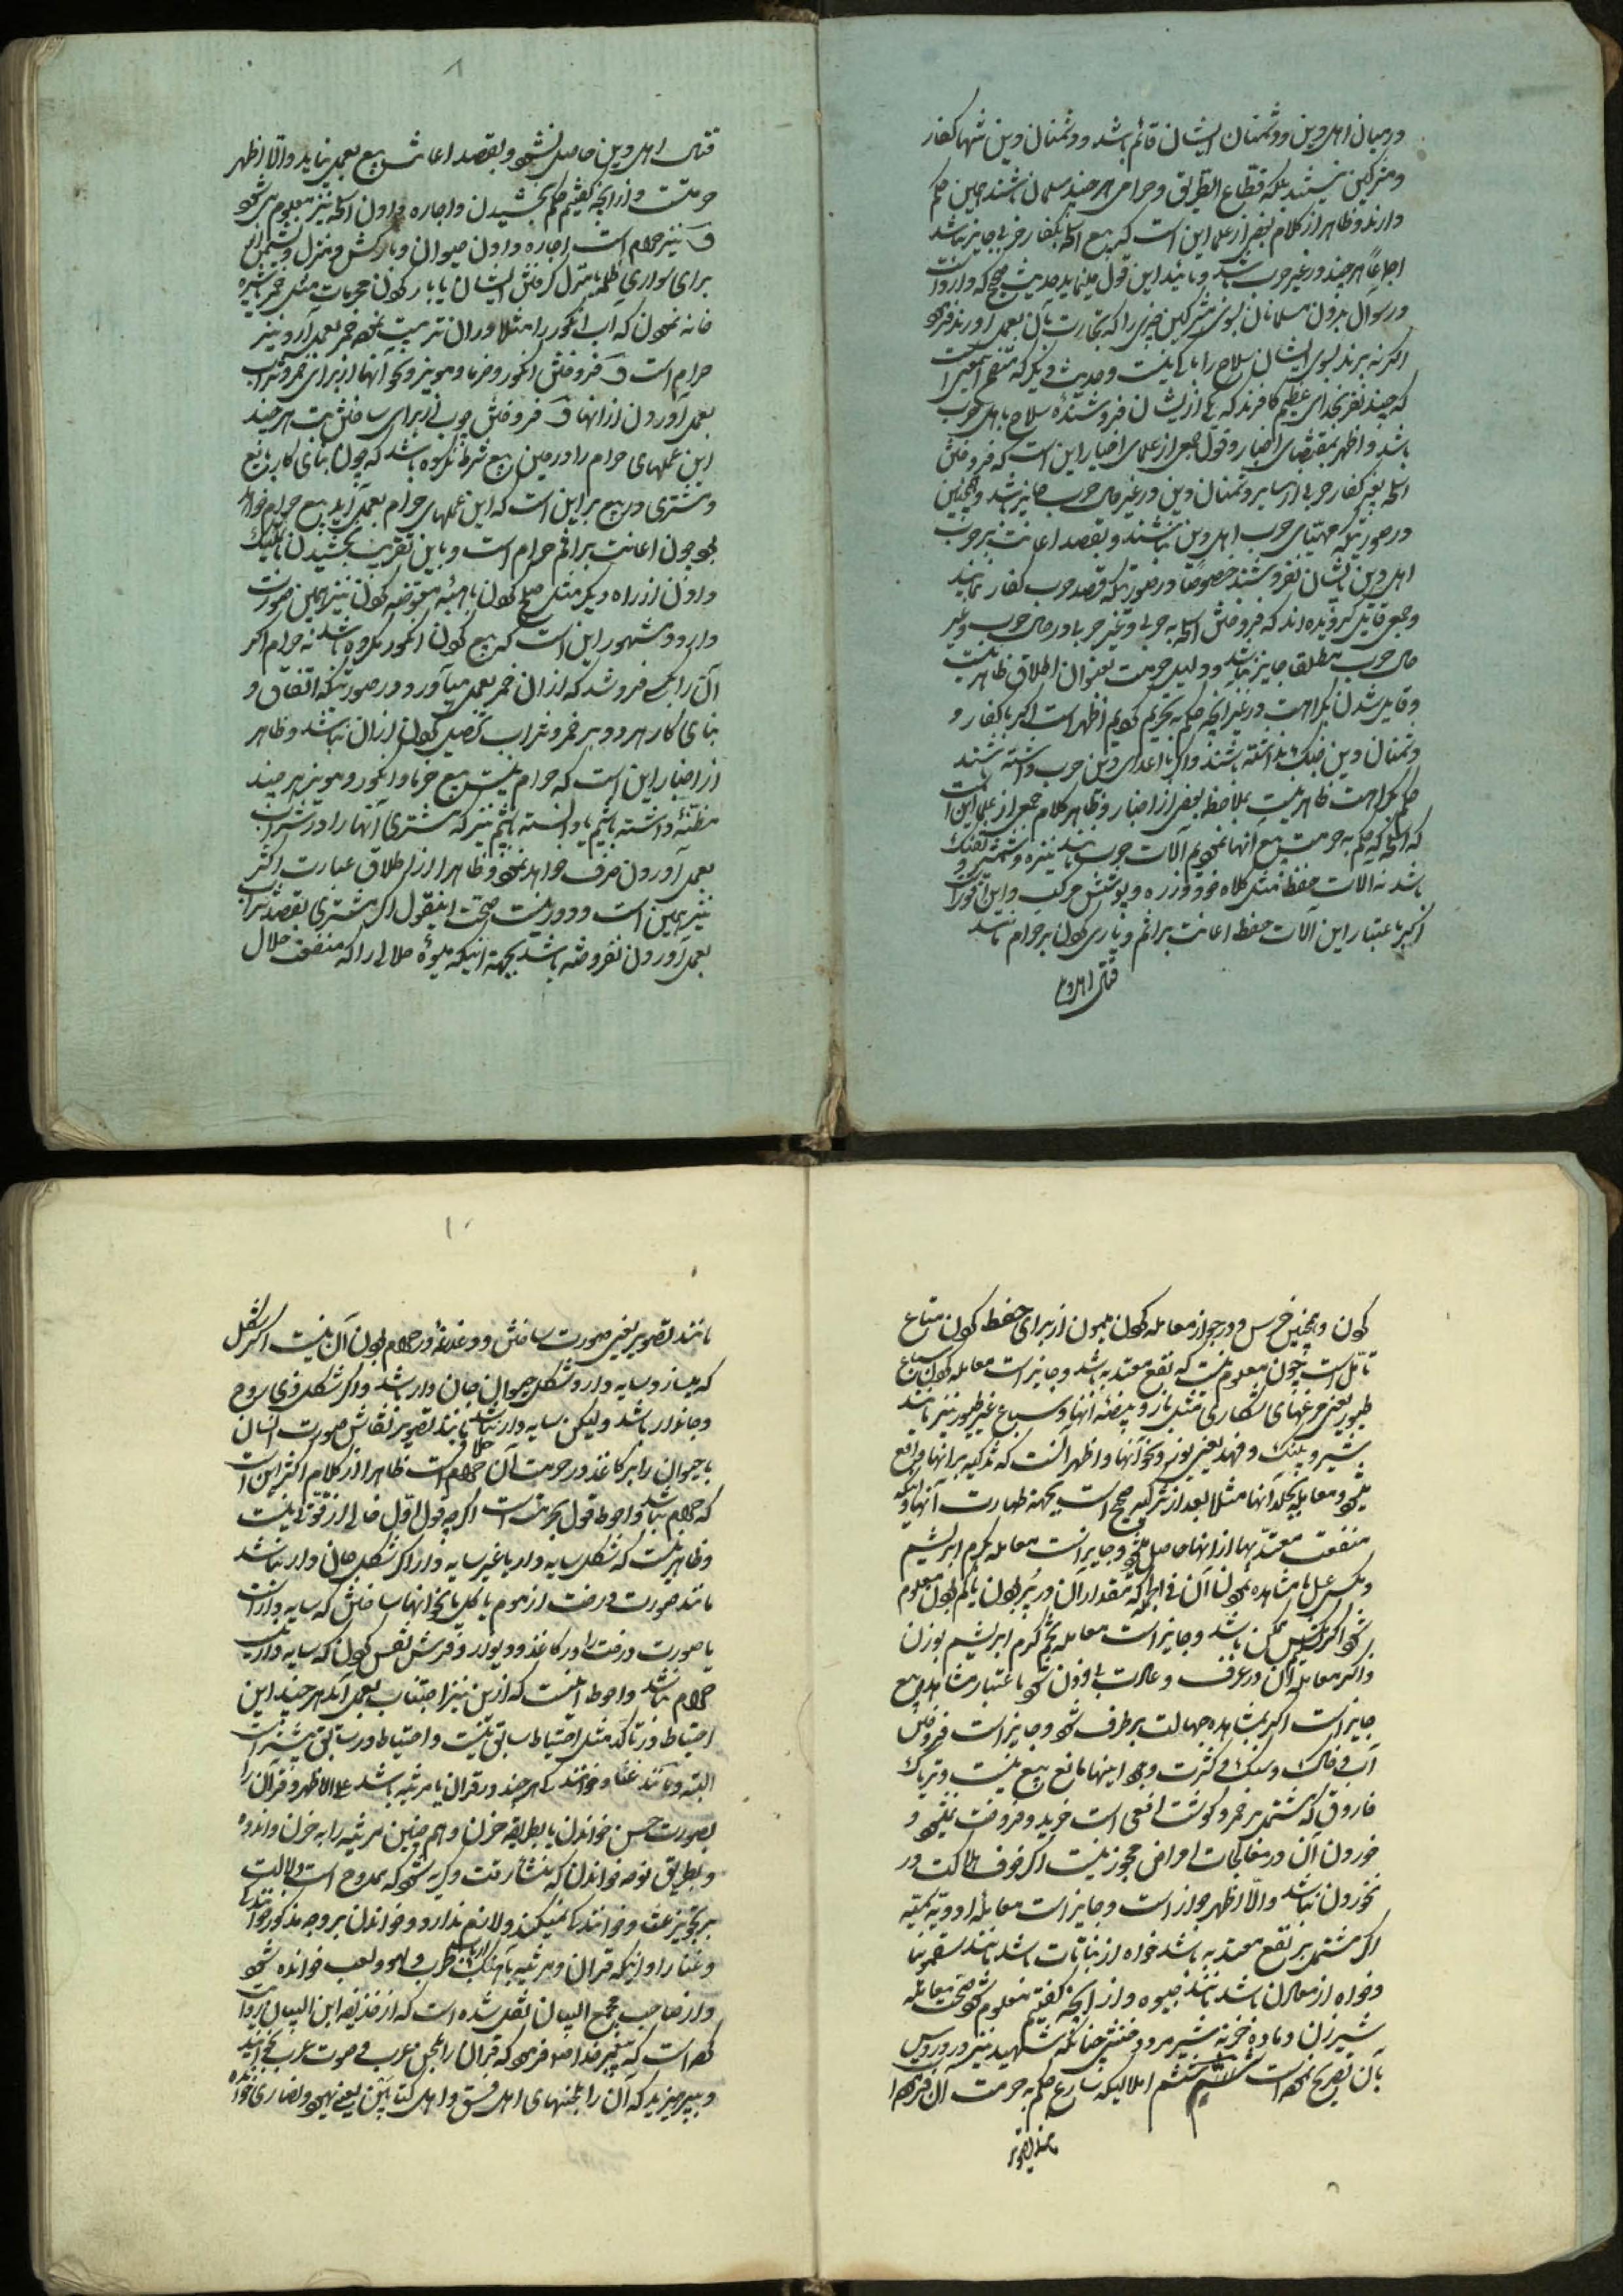 در میان اهل دین و دشمنان ایشان قائم باشد و دشمنان دین تنها کفار
و مشرکین نیستند بلکه قطاع الطریق و حرامی هر چند مسلمان باشند همین حکم
دارند و ظاهر از کلام بعضی از علما این است که بیع اسلحه بکفار حربی جایز نباشد
اجماعاً هر چند در غیر حرب باشد و تائید این قول مینماید حدیث صحیح که وارد است
در سوال بردن مسلمانان بسوی مشرکین چیزی را که تجارت بآن بعمل آورند فرموده
اگر نه برند بسوی ایشان سلاح را باکی نیست و حدیث دیگر که متضمن اینمعنی است
که چند نفر بخدای عظیم کافرند که یکی از ایشان فروشنده سلاح باهل حرب
باشد و اظهر بمقتضای اخبار و قول جمعی از علمای اخیار این است که فروختن
اسلحه بغیر کفار حربی از سایر دشمنان دین در غیر حال حرب جایز باشد و همچنین
در صورتیکه مهیای حرب اهل دین نباشند و بقصد اعانت نیز حرب
اهل دین بایشان نفروشند خصوصاً در صورتیکه قصد حرب کفار نمایند
و جمعی قایل گردیده اند که فروختن اسلحه به حربی و غیر حربی در حال حرب و غیر
حال حرب مطلقا جایز نباشد و دلیل حرمت بعنوان اطلاق ظاهر نیست
و قایل شدن بکراهت در غیر آنچه حکم به تحریم کردیم اظهر است اگر با کفار و
دشمنان دین جنگ نداشته باشند و اگر با اعدای دین حرب داشته باشند
حکم بکراهت ظاهر نیست بملاحظه بعضی از اخبار و ظاهر کلام جمعی از علما این است
که اسلحه که حکم به حرمت بیع آنها نمودیم آلات حرب باشد مانند نیزه و شمشیر و تفنگ و
باشد نه آلات حفظ مثل کلاه خود و زره و پوشش مرکب و این در صورت است
اگر باعتبار این آلات حفظ اعانت بر اثم و یاری کردن بر حرام نباشد
قتال اهل دین
۸
قتال اهل دین حاصل نشود و بقصد اعانت بیع بعمل نیاید والا اظهر
حرمت است و از آنچه گفتیم حکم بخشیدن و اجاره دادن اسلحه نیز معلوم میشود
و نیز حرام است اجاره دادن حیوان و بارکش و منزل و نشیمن
برای سواری ظلمه یا منزل گرفتن ایشان یا بار کردن محرمات مثل خمر یا شیره
خانه نمودن که آب انگور را مثلا در آن تربیت نموده خمر بعمل آرد و نیز
حرام است و فروختن انگور و خرما و مویز و نحو آنها از برای خمر و شراب
بعمل آوردن از آنها و فروختن چوب از برای ساختن بت هر چند
این عملهای حرام را در متن بیع شرط نکرده باشد که چون بنای کار بایع
و مشتری در بیع بر این است که این عملهای حرام بعمل آید بیع حرام خواهد
بود چون اعانت بر اثم حرام است و باین تقریب بخشیدن یا تملیک
دادن از راه دیگر مثل صلح کردن یا هبه معوضه کردن نیز همین صورت
دارد و مشهور این است که بیع کردن انگور مکروه باشد نه حرام اگر
آن را بکسی فروشد که از آن خمر بعمل می‌آورد در صورتیکه اتفاق و
بنای کار هر دو بر خمر و شراب تحصیل کردن از آن نباشد و ظاهر
از اخبار این است که حرام نیست بیع خرما و انگور و مویز هر چند
مظنه داشته باشیم یا دانسته باشیم نیز که مشتری آنها را در شراب
بعمل آوردن صرف خواهد نمود و ظاهرا از اطلاق عبارت اکثر
نیز همین است و دور نیست صحت اینقول اگر مشتری بقصد شراب
بعمل آوردن نفروخته باشد بجهة اینکه میوه حلالی را که منفعت حلال
کردن و همچنین خرس و در جواز معامله کردن میمون از برای حفظ کردن متاع
تامل است چون معلوم نیست که نفع معتد به باشد و جایز است معامله کردن سباع
طیور یعنی مرغهای شکاری مثل باز و بیضه آنها و سباع غیر طیور نیز مانند
شیر و پلنک و فهد یعنی یوز و نحو آنها و اظهر آنست که تذکیه بر آنها واقع
میشود و معامله بجلد آنها مثلا بعد از تذکیه صحیح است بجهة طهارت آنها و اینکه
منفعت معتد بها از آنها حاصل میشود و جایز است معامله کرم ابریشم
و مکس عسل با مشاهده نمودن آن فی الجمله که مقدار آن در پر بودن یا کم بودن معلوم
شود اگر تسلیم ممکن باشد و جایز است معامله تخم کرم ابریشم بوزن
و اگر معامله آن در عرف و عادت بی وزن شود باعتبار مشاهده بیع
جایز است اگر بمشاهده جهالت برطرف شود و جایز است فروختن
آب و خاک و سنک و کثرت وجود اینها مانع بیع نیست و تریاک
فاروق که مشتمل بر خمر و گوشت افعی است خرید و فروخت نمیشود و
خوردن آن در معالجات امراض مجوز نیست اگر خوف هلاکت در
نخوردن نباشد والا اظهر جواز است و جایز است معامله ادویه سمیه
اگر مشتمل بر نفع معتد به باشد خواه از نباتات باشد مانند سقمونیا
و خواه از معادن باشد مانند جیوه و از آنچه گفتیم معلوم شود صحت معامله
شیر زن و ماده خر نه شیر مرد و خنثی چنانکه شهید نیز در دروس
بآن تصریح نموده است قسم ششم اعمالیکه شارع حکم به حرمت آن فرموده
مانند تصویر
۱۰
مانند تصویر یعنی صورت ساختن و دغدغه در حرام بودن آن نیست اگر شکل
که میسازد سایه دار و شکل حیوان جان دار باشد و اگر شکل ذی روح
و جاندار باشد و لیکن سایه دار نباشد مانند تصویر نقاش صورت انسان
یا حیوان را بر کاغذ در حرمت آن خلاف است ظاهرا از کلام اکثر این است
که حرام نباشد و احوط قول بحرمت است اگر چه قول اول خالی از قوت نیست
و ظاهر نیست که شکل سایه دار یا غیر سایه دار اگر شکل جان دار نباشد
مانند صورت درخت از موم یا گل یا نحو آنها ساختن که سایه دار است
یا صورت درخت را در کاغذ و دیوار و فرش نقش کردن که سایه دار نیست
حرام باشد و احوط آنست که از این نیز اجتناب بعمل آید هر چند این
احتیاط در تأکد مثل احتیاط سابق نیست و احتیاط در سابق بیشتر است
البته و مانند غنا و خوانندگی هر چند در قرآن یا مرثیه باشد علی الاظهر و قرآن را
بصورت حسن خواندن یا بطریقه حزن و هم چنین مرثیه را به حزن و اندوه
و بطریق نوحه خواندن که منشأ رقت و گریه شود که ممدوح است دلالت
بر تجویز غنا و خوانندگی نمیکند و لازم ندارد و خواندن بر وجه مذکور خوانندگی
و غنا را و اینکه قرآن و مرثیه بآهنگ ارباب طرب و لهو و لعب خوانده شود
و از صاحب مجمع البیان نقل شده است که از حذیفه ابن الیمان روایت
نموده است که پیغمبر خدا ص فرموده که قرآن را بلحن عرب و صوت عرب بخوانید
و بپرهیزید که آن را بلحنهای اهل فسق و اهل کتابین یعنی یهود و نصاری